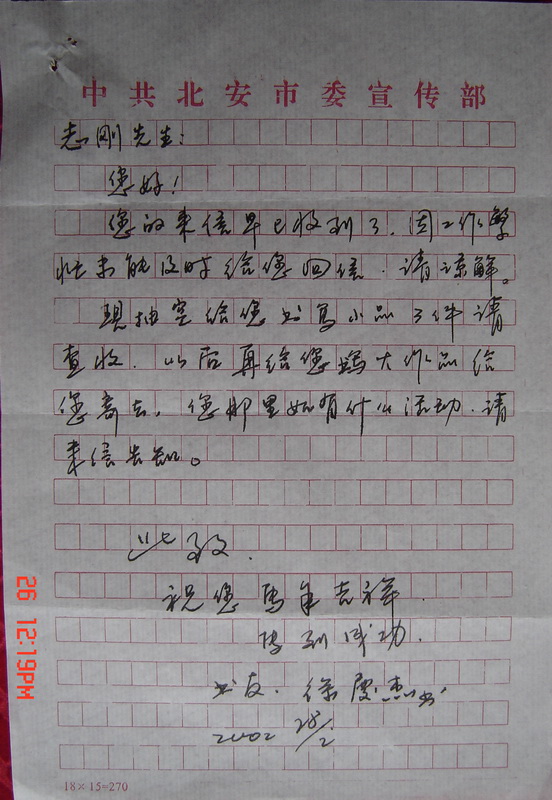 中共北安市委宣传部
志刚先生:
您好!
您的来信早已收到了,因工作繁
忙未能及时给您回信.请谅解。
现抽空给您书写小品3件请
查收.以后再给您写大作品给
您寄去,您那里如有什么活动.请
来信告知。
此致.
祝您马年吉祥.
马到成功.
书友.徐庆杰书
2002 28/2
18×15=270
26 12:19PM